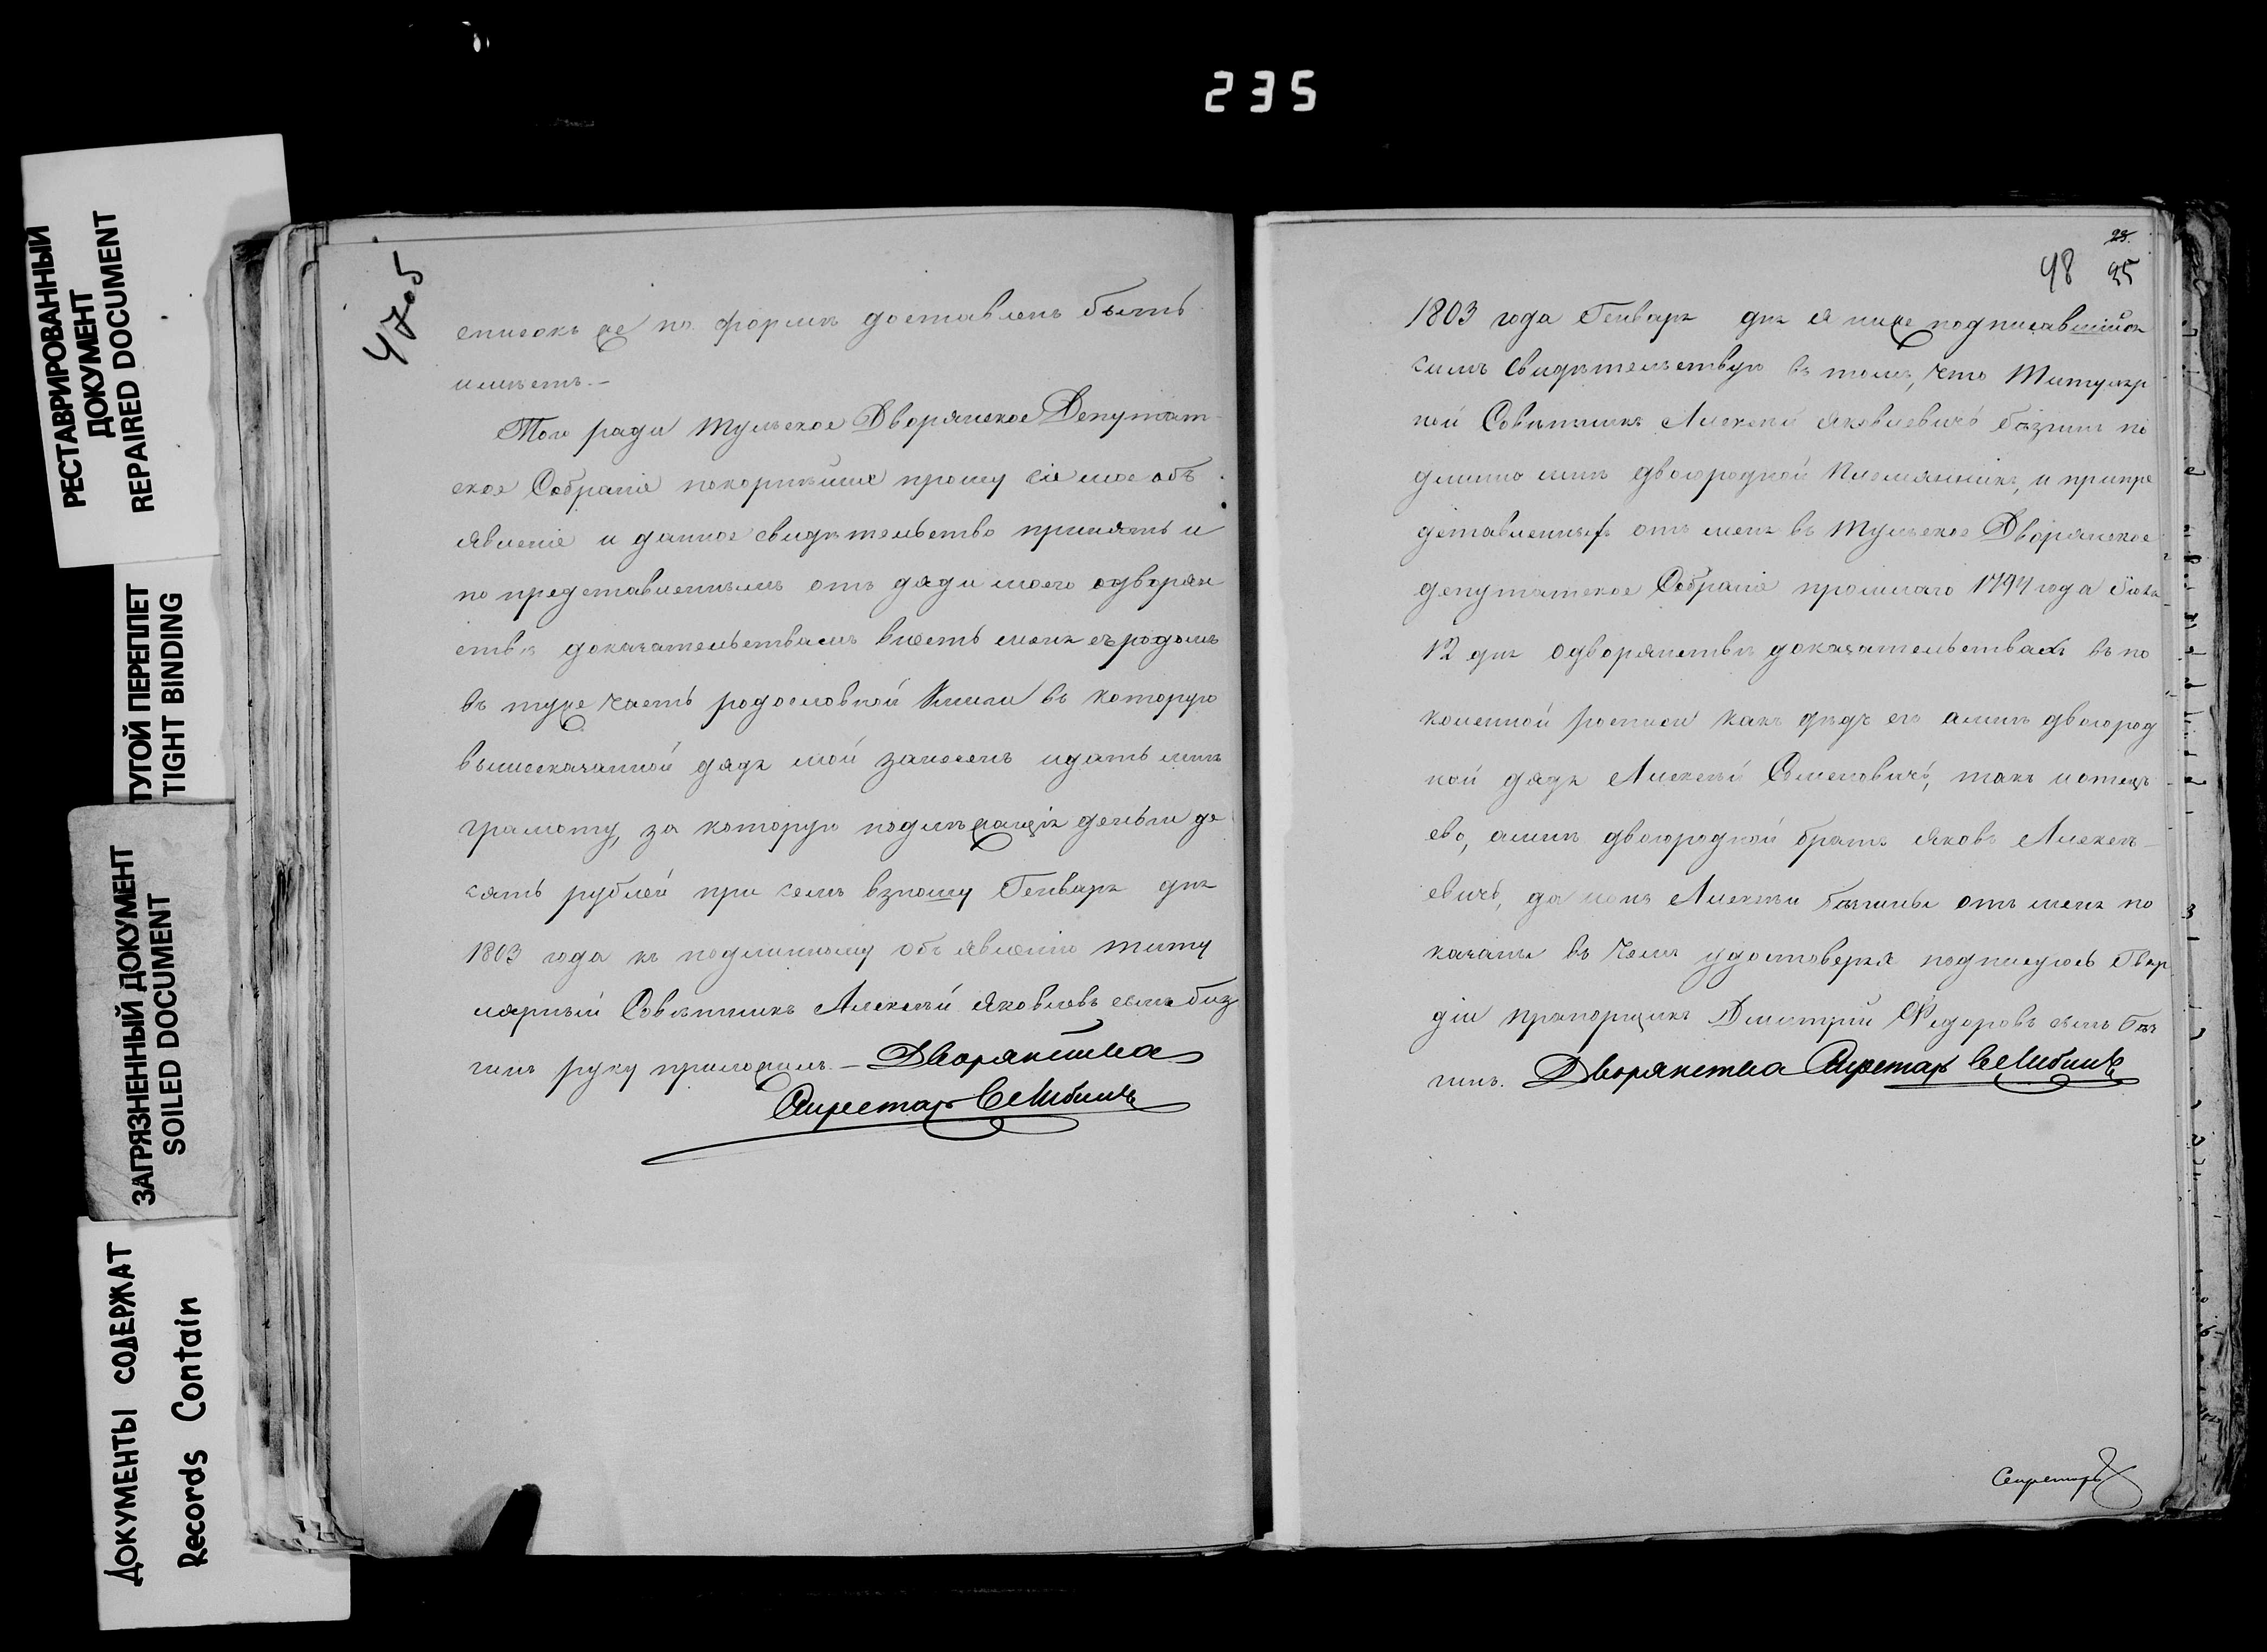 235
РЕСТАВРИРОВАННЫЙ
ДОКУМЕНТ
REPAIRED DOCUMENT
ТУГОЙ ПЕРЕПЛЕТ
TIGHT BINDING
ЗАГРЯЗНЕННЫЙ ДОКУМЕНТ
SOILED DOCUMENT
ДОКУМЕНТЫ СОДЕРЖАТ
Records Contain
47об
списокъ же по формѣ доставленъ быть
имѣетъ.—
Того ради Тульское Дворянское Депутат-
ское Собраніе покорнѣйше прошу сіе мое объ
явленіе и данное свидѣтельство принять и
по представленнымъ отъ дяди моего одворян
ствѣ доказательствамъ внесть меня съ родомъ
въ туже часть родословной книги въ которую
вышесказанной дядя мой занесенъ идать мнѣ
грамоту, за которую подлежащія деньги де
сять рублей при семъ взношу Генваря дня
1803 года къ подлинному объявленію титу
лярный Совѣтникъ Алексѣй Яковлевъ сынъ Бѣз
гинъ руку приложилъ.— Дворянства
Секретарь
48 35
28.
1803 года Генваря дня я ниже подписавшійся
симъ свидѣтельствую въ томъ, что Титуляр
ной Совѣтникъ Алексѣй Яковлевичъ
длинно мнѣ двоюродной племянникъ, и припре
дставленныхъ отъ меня въ Тульское Дворянское
депутатское Собраніе прошлаго 1794 года
12 дня одворянствѣ доказательствахъ въ по
коленной росписи какъ дѣдъ его амнѣ двоюрод
ной дядя Алексѣй Семеновичь, такъ иотецъ
ево, амнѣ двоюродной братъ Яковъ Алексѣ-
евичь, да ионъ Алексѣй отъ меня по
казаны въ чемъ удостоверяя подписуюсь Гвар
діи прапорщикъ Дмитрій Федоровъ сынъ
гинъ. Дворянства Секретарь
Секретарь